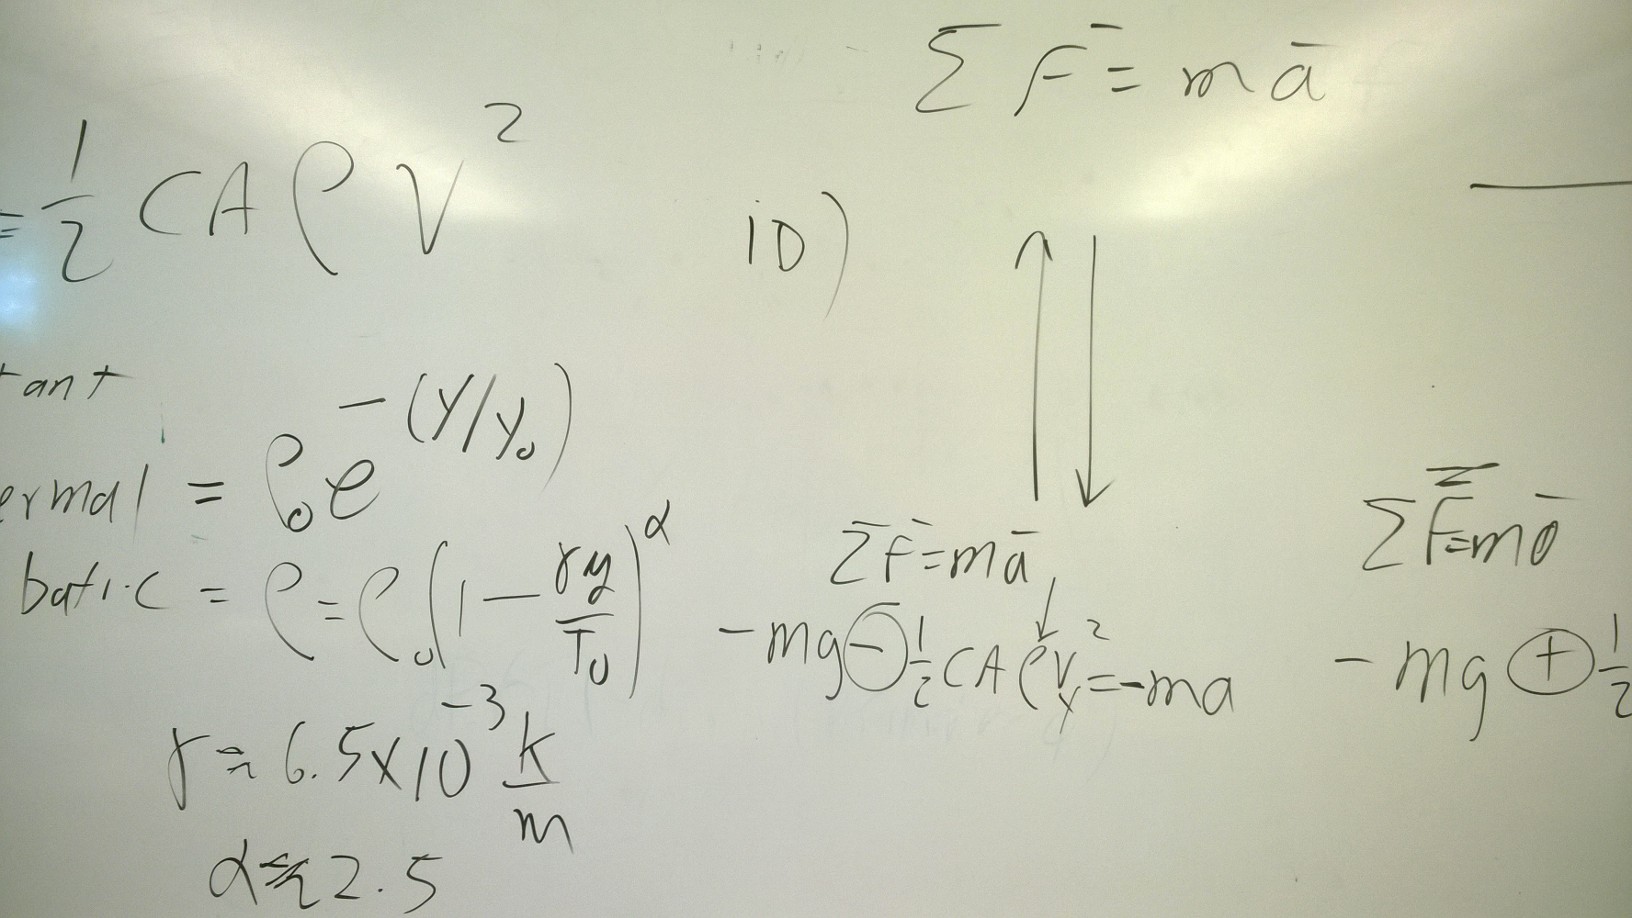 ΣF̄ = mā
= 1/2 CAρV²
1D)
tant
ermal = ρ₀e^-(y/y₀)
batic = ρ = ρ₀(1 - γy/T₀)^α
γ ≈ 6.5x10^-3 k/m
α ≈ 2.5
ΣF̄ = mā
-mg - 1/2 CAρVy² = -ma
ΣF̄ = mā
-mg + 1/2